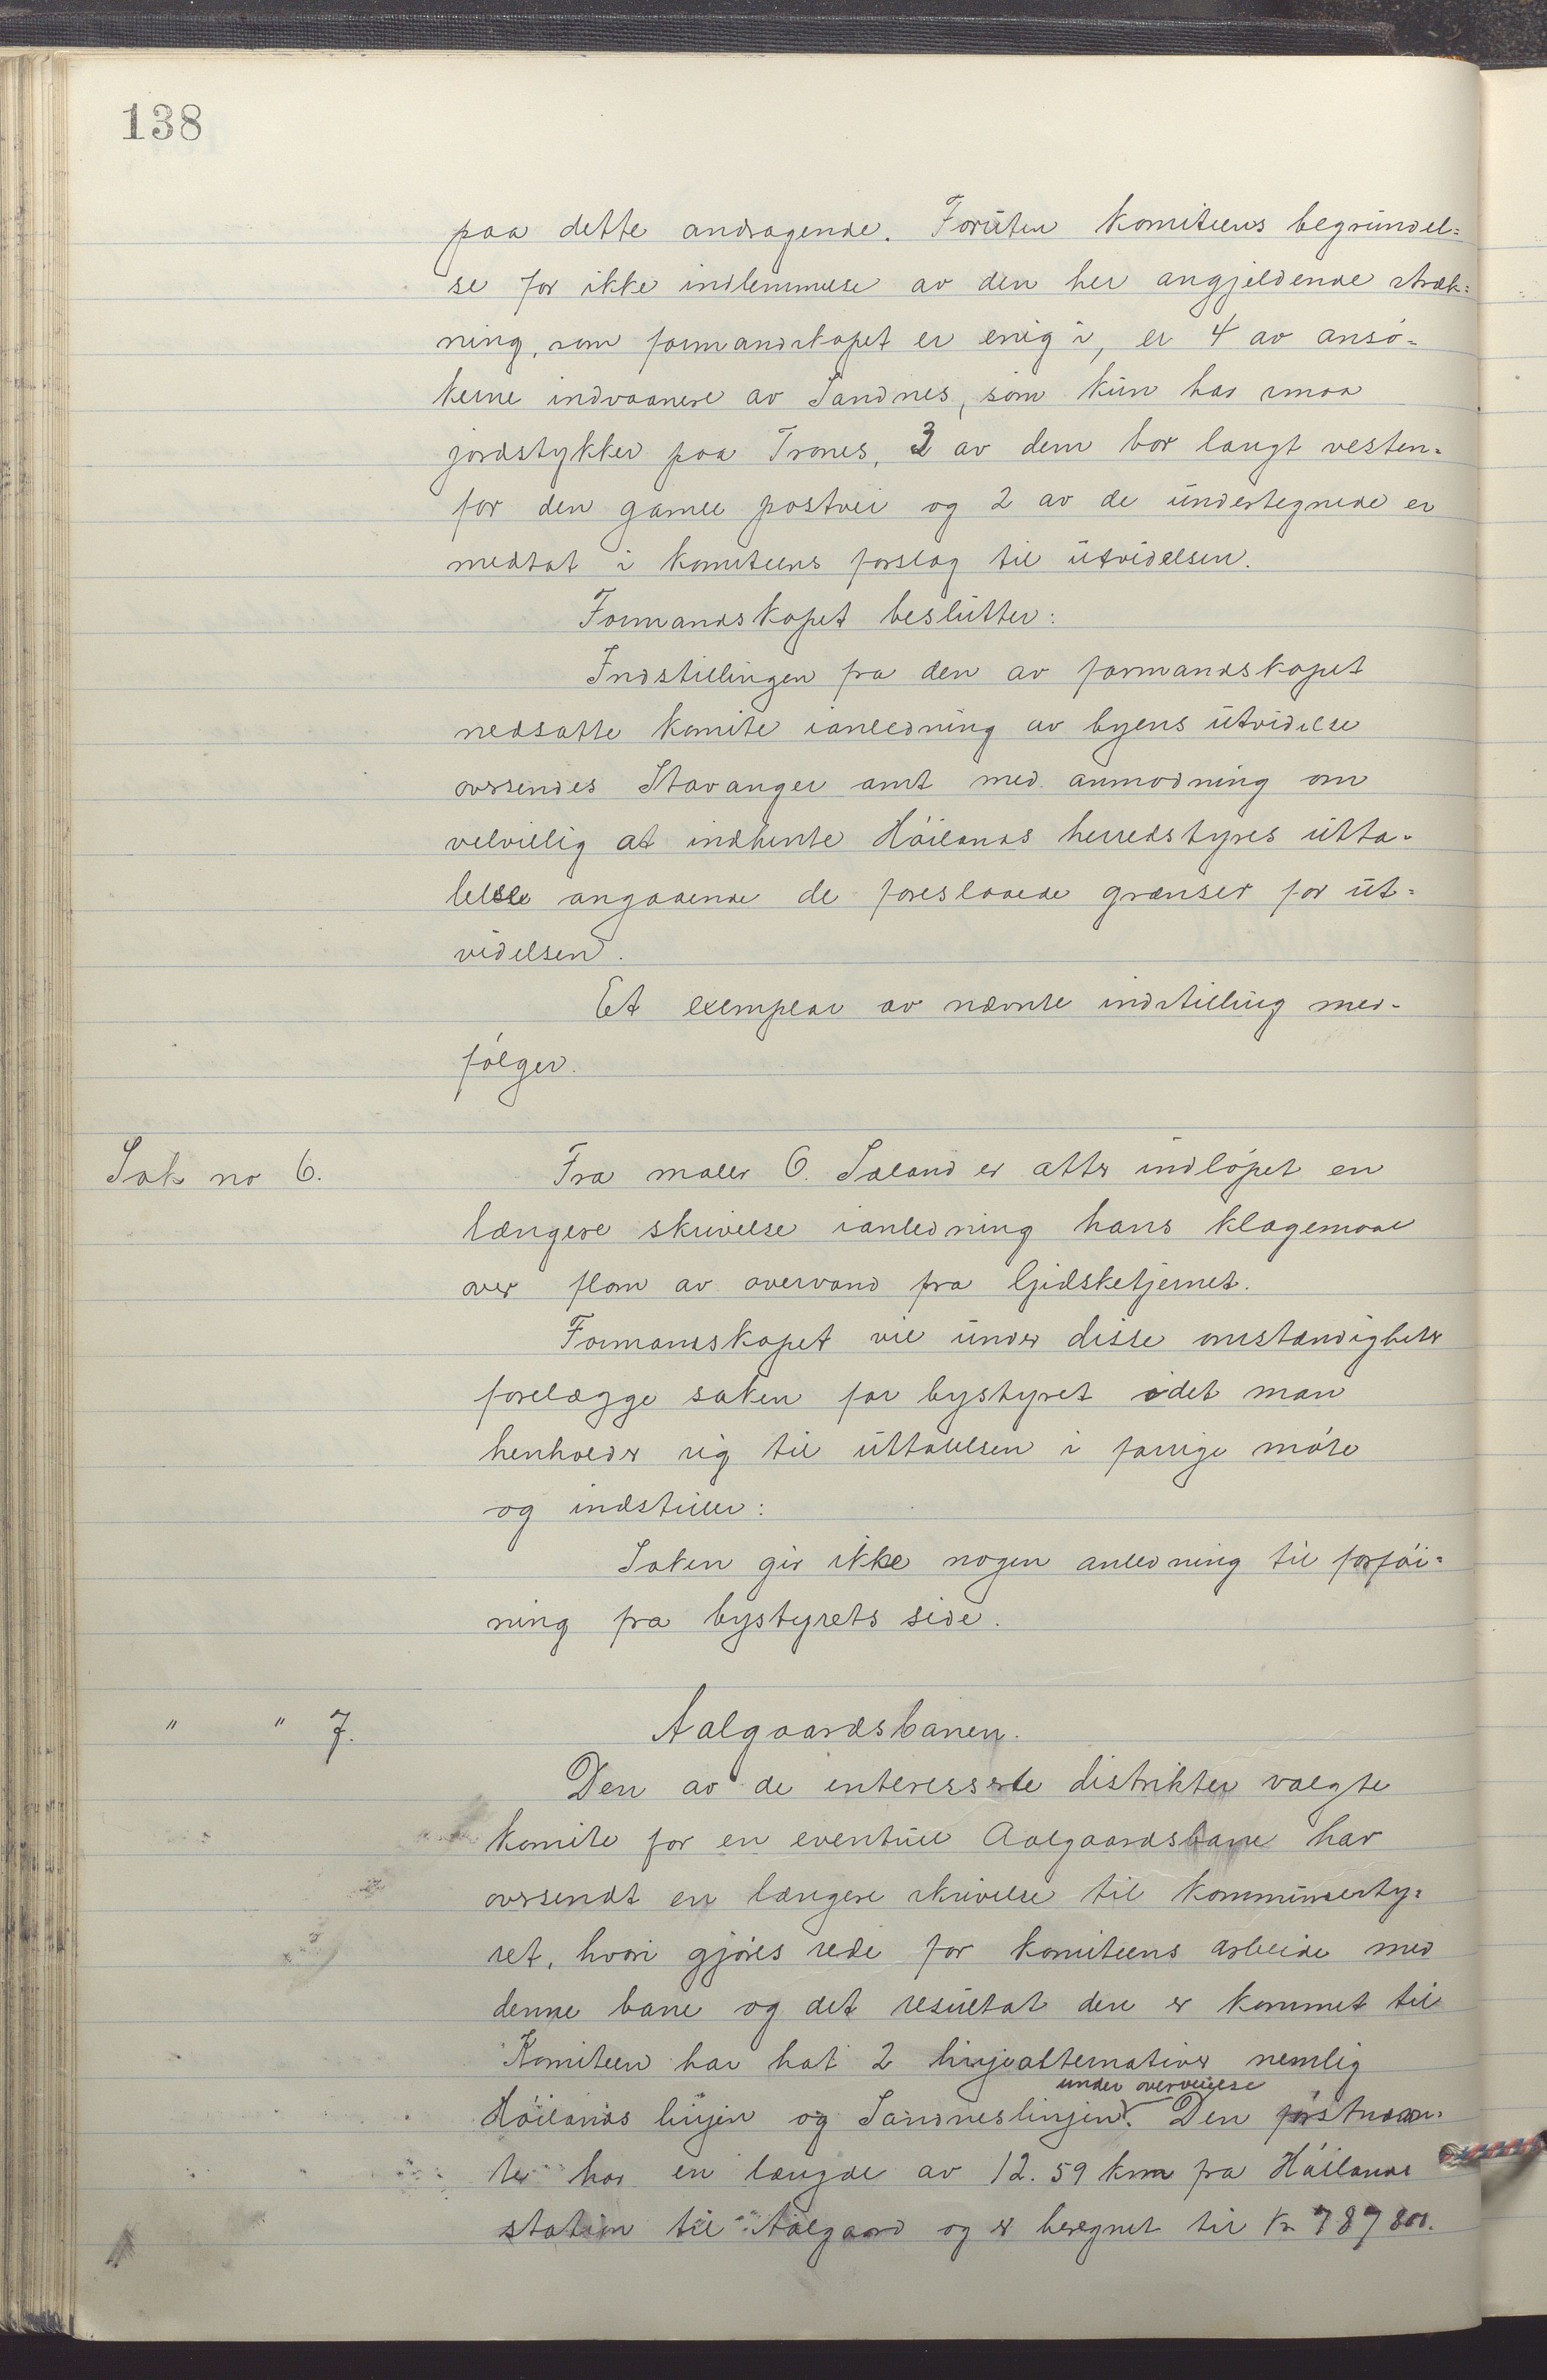 138
paa dette andragende. Foruten komiteens begrundel=
se for ikke indlemmelse av den her angjeldende stræk=
ning, som formandskapet er enig i, er 4 av ansø=
kerne indvaanere av Sandnes, som kun har smaa
jordstykker paa Trones, 3 av dem bor langt vesten=
for den gamle postvei og 2 av de undertegnede er
medtat i komiteens forslag til utvidelsen.
Formandskapet beslutter:
Indstillingen fra den av formandskapet
nedsatte komite ianledning av byens utvidelse
oversendes Stavanger amt med anmodning om
velvillig at indhente Høilands herredstyres utta=
lelse angaaende de foreslaaede grænser for ut=
videlsen.
Et exemplar av nævnte indstilling med=
følger.
Sak no 6.
Fra maler O. Sæland er atter indløpet en
længere skrivelse ianledning hans klagemaal
over flom av overvand fra Gjidsketjernet.
Formandskapet vil under disse omstændigheter
forelægge saken for bystyret idet man
henholder sig til uttalelsen i forrige møte
og indstiller:
Saken gir ikke nogen anledning til forføi=
ning fra bystyrets side.
" " 7.
Aalgaardsbanen.
Den av de interesserte distrikter valgte
komite for en eventuel Aalgaardsbane har
oversendt en længere skrivelse til kommunesty=
ret, hvori gjøres rede for komiteens arbeide med
denne bane og det resultat den er kommet til
Komiteen har hat 2 linjealternativer nemlig
under overveielse
Høilands linjen og Sandneslinjen. Den førstnævn=
te har en længde av 12.59 km fra Høilands
station til Aalgaard og er beregnet til kr 787800.